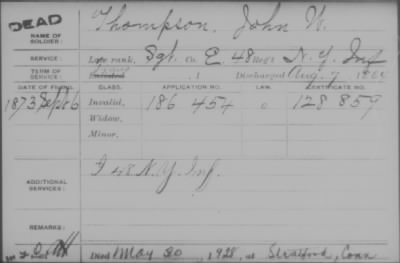 DEAD
NAME OF SOLDIER: Thompson, John W.
SERVICE: Late rank, Sgt. Co. E, 48 Reg't N.Y. Inf
TERM OF SERVICE: Enlisted , 1 Discharged Aug. 7, 186
DATE OF FILING. CLASS. APPLICATION NO. LAW. CERTIFICATE NO.
1873 Sep 6 Invalid, 186 454 128 859
Widow,
Minor,
ADDITIONAL SERVICES: I 48 N.Y. Inf.
REMARKS:
Died May 30, 1928, at Stratford, Conn